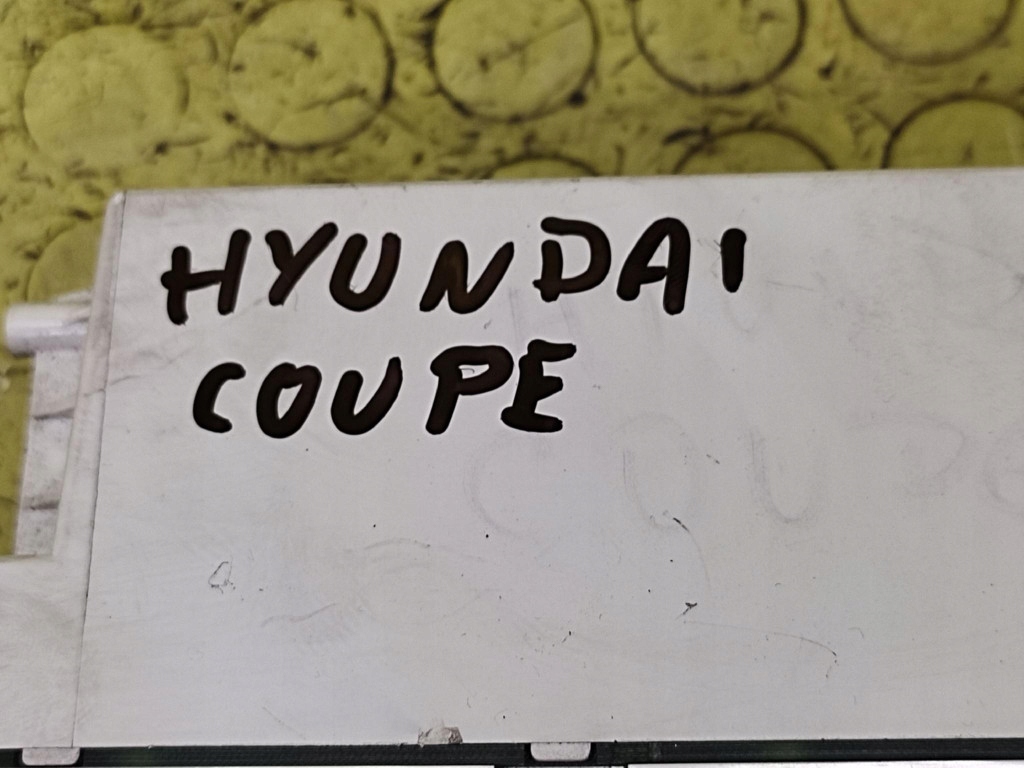 HYUNDAI
COUPE